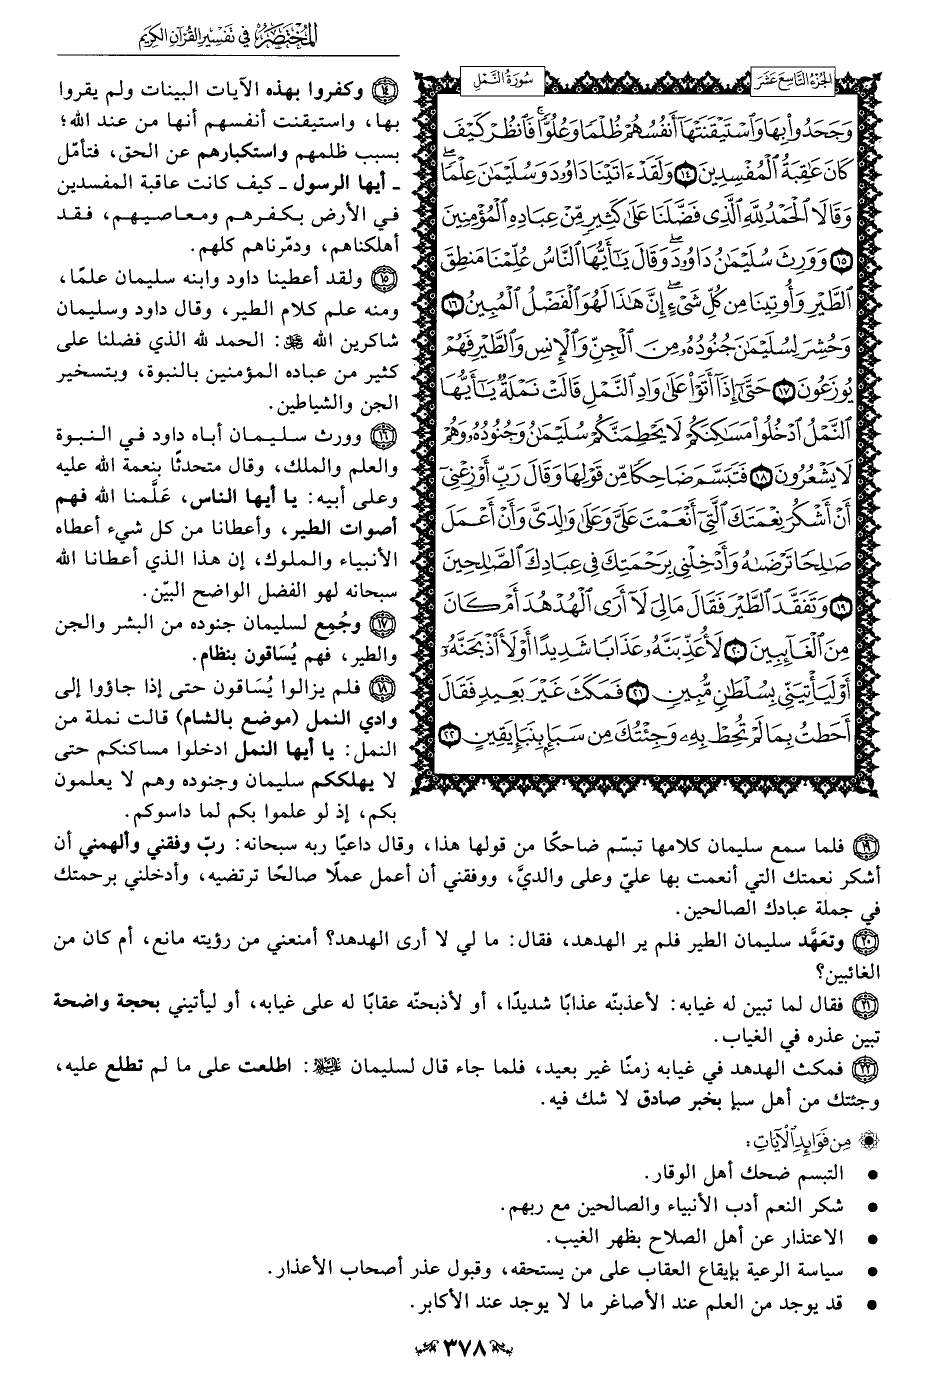 المختصر في تفسير القرآن الكريم
الجزء التاسع عشر
سورة النمل
وَجَحَدُوا۟ بِهَا وَٱسْتَيْقَنَتْهَآ أَنفُسُهُمْ ظُلْمًا وَعُلُوًّا ۚ فَٱنظُرْ كَيْفَ
كَانَ عَٰقِبَةُ ٱلْمُفْسِدِينَ ١٤ وَلَقَدْ ءَاتَيْنَا دَاوُۥدَ وَسُلَيْمَٰنَ عِلْمًا ۖ
وَقَالَا ٱلْحَمْدُ لِلَّهِ ٱلَّذِى فَضَّلَنَا عَلَىٰ كَثِيرٍ مِّنْ عِبَادِهِ ٱلْمُؤْمِنِينَ
١٥ وَوَرِثَ سُلَيْمَٰنُ دَاوُۥدَ ۖ وَقَالَ يَٰٓأَيُّهَا ٱلنَّاسُ عُلِّمْنَا مَنطِقَ
ٱلطَّيْرِ وَأُوتِينَا مِن كُلِّ شَىْءٍ ۖ إِنَّ هَٰذَا لَهُوَ ٱلْفَضْلُ ٱلْمُبِينُ ١٦
وَحُشِرَ لِسُلَيْمَٰنَ جُنُودُهُۥ مِنَ ٱلْجِنِّ وَٱلْإِنسِ وَٱلطَّيْرِ فَهُمْ
يُوزَعُونَ ١٧ حَتَّىٰٓ إِذَآ أَتَوْا۟ عَلَىٰ وَادِ ٱلنَّمْلِ قَالَتْ نَمْلَةٌ يَٰٓأَيُّهَا
ٱلنَّمْلُ ٱدْخُلُوا۟ مَسَٰكِنَكُمْ لَا يَحْطِمَنَّكُمْ سُلَيْمَٰنُ وَجُنُودُهُۥ وَهُمْ
لَا يَشْعُرُونَ ١٨ فَتَبَسَّمَ ضَاحِكًا مِّن قَوْلِهَا وَقَالَ رَبِّ أَوْزِعْنِىٓ
أَنْ أَشْكُرَ نِعْمَتَكَ ٱلَّتِىٓ أَنْعَمْتَ عَلَىَّ وَعَلَىٰ وَٰلِدَىَّ وَأَنْ أَعْمَلَ
صَٰلِحًا تَرْضَىٰهُ وَأَدْخِلْنِى بِرَحْمَتِكَ فِى عِبَادِكَ ٱلصَّٰلِحِينَ
١٩ وَتَفَقَّدَ ٱلطَّيْرَ فَقَالَ مَالِىَ لَآ أَرَى ٱلْهُدْهُدَ أَمْ كَانَ
مِنَ ٱلْغَآئِبِينَ ٢٠ لَأُعَذِّبَنَّهُۥ عَذَابًا شَدِيدًا أَوْ لَأَا۟ذْبَحَنَّهُۥٓ
أَوْ لَيَأْتِيَنِّى بِسُلْطَٰنٍ مُّبِينٍ ٢١ فَمَكَثَ غَيْرَ بَعِيدٍ فَقَالَ
أَحَطتُ بِمَا لَمْ تُحِطْ بِهِۦ وَجِئْتُكَ مِن سَبَإٍۭ بِنَبَإٍ يَقِينٍ ٢٢
١٤ وكفروا بهذه الآيات البينات ولم يقروا
بها، واستيقنت أنفسهم أنها من عند الله؛
بسبب ظلمهم واستكبارهم عن الحق، فتأمّل
ـ أيها الرسول ـ كيف كانت عاقبة المفسدين
في الأرض بكفرهم ومعاصيهم، فقد
أهلكناهم، ودمّرناهم كلهم.
١٥ ولقد أعطينا داود وابنه سليمان علمًا،
ومنه علم كلام الطير، وقال داود وسليمان
شاكرين الله ﷻ: الحمد لله الذي فضلنا على
كثير من عباده المؤمنين بالنبوة، وبتسخير
الجن والشياطين.
١٦ وورث سليمان أباه داود في النبوة
والعلم والملك، وقال متحدثًا بنعمة الله عليه
وعلى أبيه: يا أيها الناس، عَلَّمنا الله فهم
أصوات الطير، وأعطانا من كل شيء أعطاه
الأنبياء والملوك، إن هذا الذي أعطانا الله
سبحانه لهو الفضل الواضح البيّن.
١٧ وجُمِع لسليمان جنوده من البشر والجن
والطير، فهم يُسَاقون بنظام.
١٨ فلم يزالوا يُسَاقون حتى إذا جاؤوا إلى
وادي النمل (موضع بالشام) قالت نملة من
النمل: يا أيها النمل ادخلوا مساكنكم حتى
لا يهلككم سليمان وجنوده وهم لا يعلمون
بكم، إذ لو علموا بكم لما داسوكم.
١٩ فلما سمع سليمان كلامها تبسّم ضاحكًا من قولها هذا، وقال داعيًا ربه سبحانه: ربّ وفقني وألهمني أن
أشكر نعمتك التي أنعمت بها عليّ وعلى والديَّ، ووفقني أن أعمل عملًا صالحًا ترتضيه، وأدخلني برحمتك
في جملة عبادك الصالحين.
٢٠ وتعَهَّد سليمان الطير فلم ير الهدهد، فقال: ما لي لا أرى الهدهد؟ أمنعني من رؤيته مانع، أم كان من
الغائبين؟
٢١ فقال لما تبين له غيابه: لأعذبنّه عذابًا شديدًا، أو لأذبحنّه عقابًا له على غيابه، أو ليأتيني بحجة واضحة
تبين عذره في الغياب.
٢٢ فمكث الهدهد في غيابه زمنًا غير بعيد، فلما جاء قال لسليمان عليه السلام: اطلعت على ما لم تطلع عليه،
وجئتك من أهل سبإ بخبر صادق لا شك فيه.
من فوائد الآيات:
• التبسم ضحك أهل الوقار.
• شكر النعم أدب الأنبياء والصالحين مع ربهم.
• الاعتذار عن أهل الصلاح بظهر الغيب.
• سياسة الرعية بإيقاع العقاب على من يستحقه، وقبول عذر أصحاب الأعذار.
• قد يوجد من العلم عند الأصاغر ما لا يوجد عند الأكابر.
٣٧٨